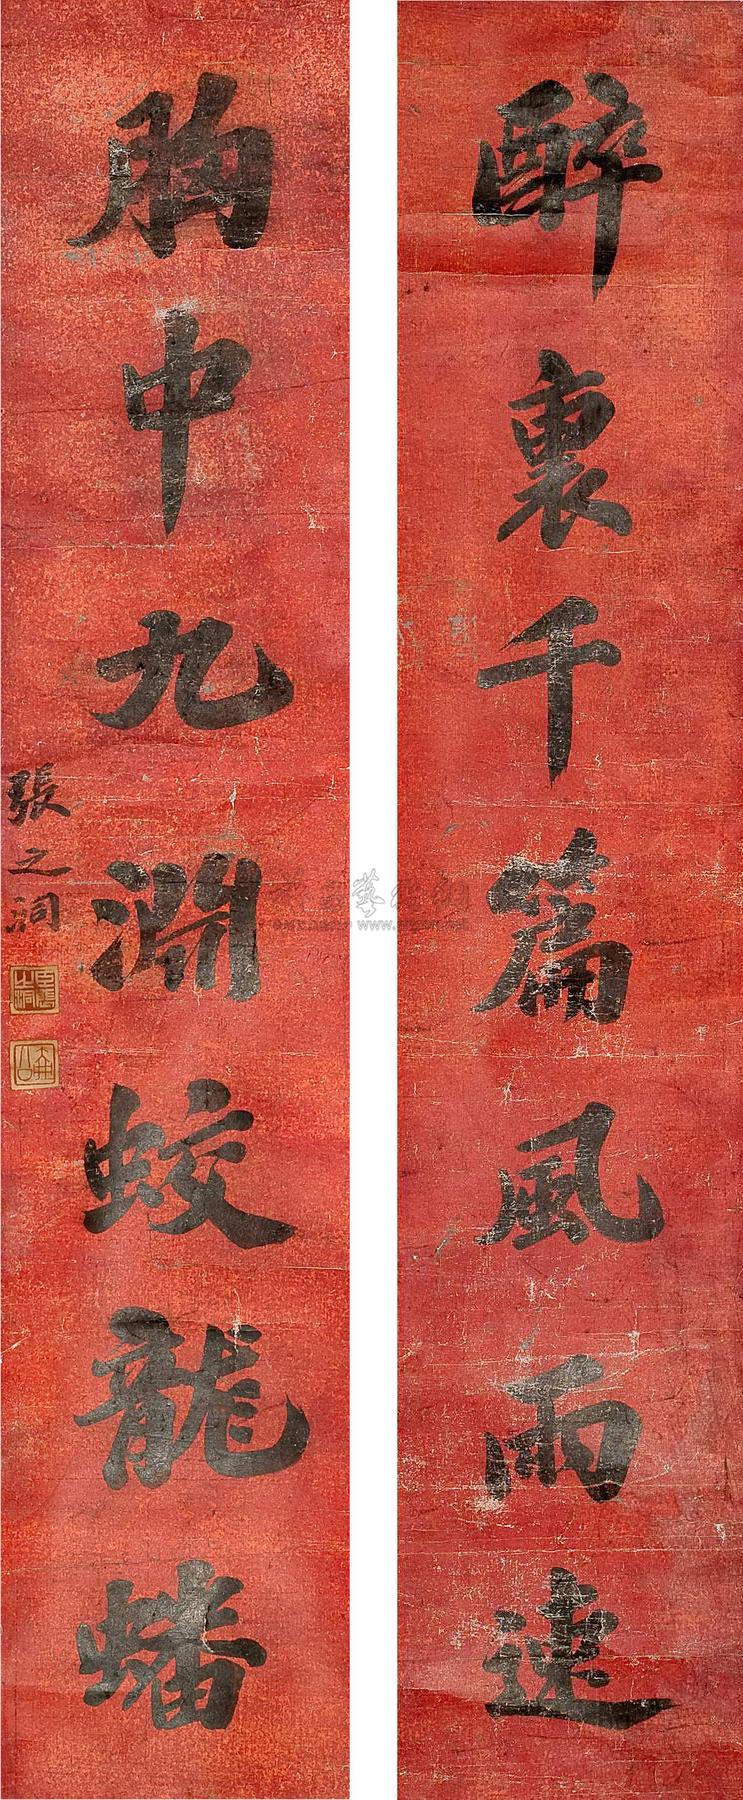 醉裏千篇風雨速
胸中九淵蛟龍蟠
張之洞